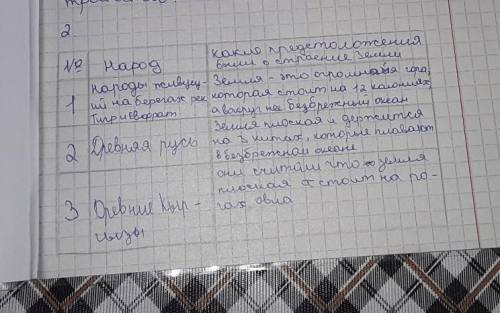 2.
№ Народ какие предстоложения
были о строение Земли
1 народы живущу-
ий на берегах рек
Тигр и Евфрат
Земля - это огромная гора,
которая стоит на 12 колоннах
а вокруг нее безбрежный океан
2 Древняя русь
Земля плоская и держится
на 3 китах, которые плавают
в безбрежном океане
3 Древние Кыр-
гызы
они считали что земля
плоская и стоит на ро-
гах овла